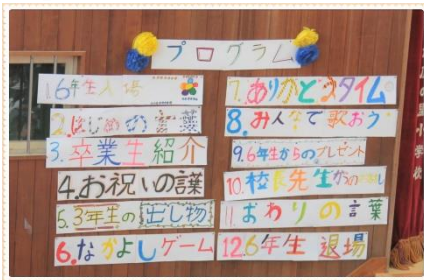 プログラム
1.6年生入場
2.はじめの言葉
3.卒業生紹介
4.お祝いの言葉
5.3年生の出し物
6.なかよしゲーム
7.ありがとうタイム
8.みんなで歌おう
9.6年生からのプレゼント
10.校長先生からの
11.おわりの言葉
12.6年生退場
小学校